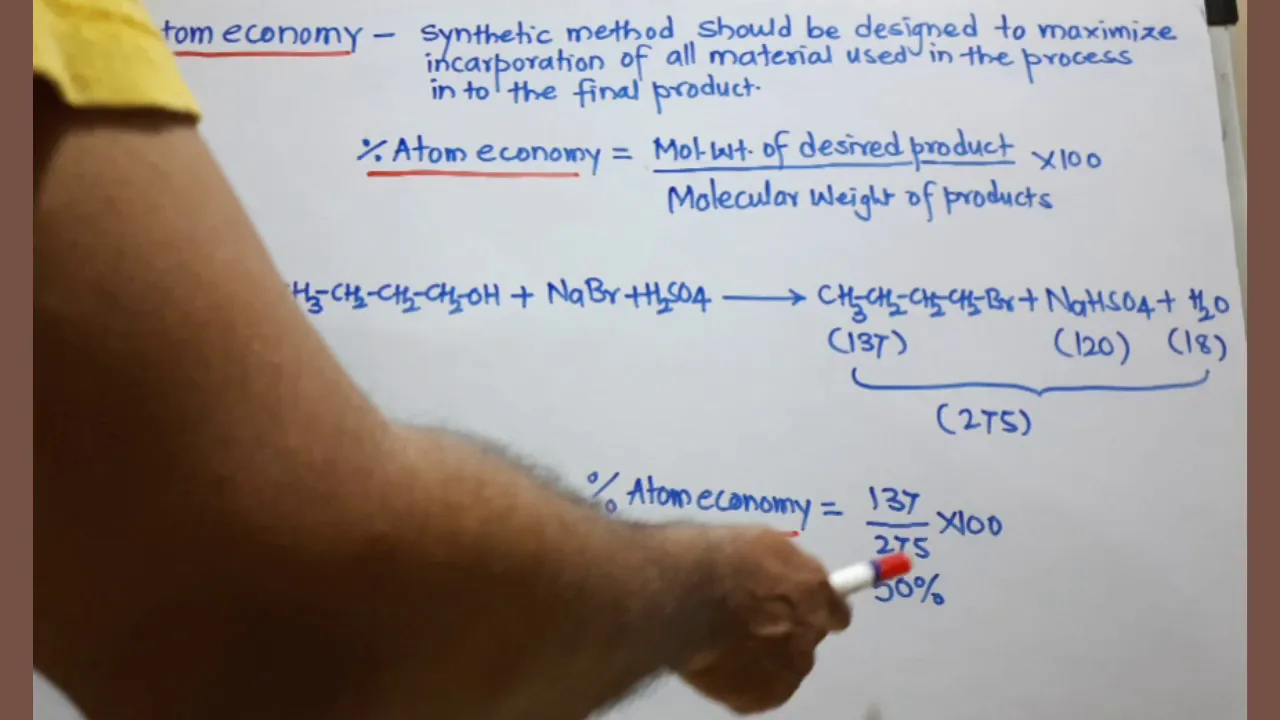 tom economy - Synthetic method should be designed to maximize
incarporation of all material used in the process
in to the final product.
% Atom economy = Mol. wt. of desired product × 100
Molecular Weight of products
H₃-CH₂-CH₂-CH₂-OH + NaBr + H₂SO4 ⟶ CH₃-CH₂-CH₂-CH₂-Br + NaHSO4 + H₂O
(137) (120) (18)
(275)
% Atom economy = 137 × 100
275
50%